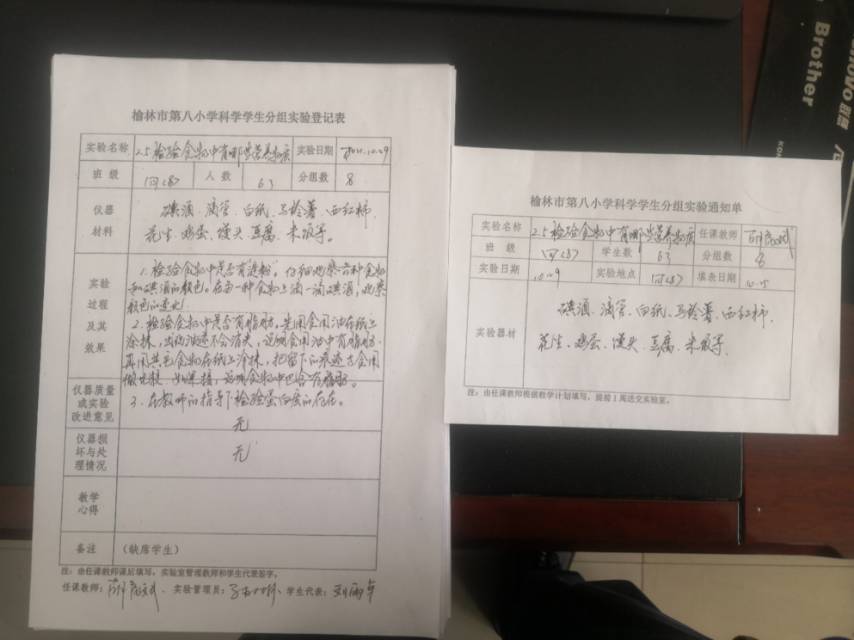 榆林市第八小学科学学生分组实验登记表
实验名称 2.5检验食物中有哪些营养物质 实验日期 10.29
班 级 四(8) 人 数 63 分组数 8
仪器材料 碘酒、滴管、白纸、马铃薯、西红柿、
花生、鸡蛋、馒头、豆腐、米饭等。
实验过程及其效果
1. 检验食物中是否有淀粉。仔细观察六种食物
和碘酒的颜色。在每一种食物上滴一滴碘酒,观察
颜色的变化。
2. 检验食物中是否有脂肪。先用食用油在纸上
涂抹,出的油迹不会消失,说明食用油中有脂肪。
再用其它食物在纸上涂抹,把留下的痕迹与食用
做比较,如果一样,说明食物中包含有脂肪。
3. 在教师的指导下检验蛋白质的存在。
仪器质量或实验改进意见 无
仪器损坏与处理情况 无
教学心得
备注 (缺席学生)
注:由任课教师课后填写,实验室管理教师和学生代表签字。
任课教师: 实验管理员: 学生代表:
榆林市第八小学科学学生分组实验通知单
实验名称 2.5检验食物中有哪些营养物质 任课教师
班 级 四(8) 学生数 63 分组数 8
实验日期 10.29 实验地点 四(8) 填表日期
实验器材 碘酒、滴管、白纸、马铃薯、西红柿、
花生、鸡蛋、馒头、豆腐、米饭等。
注:由任课教师根据教学计划填写,提前1周送交实验室。
Brother
Lenovo 联想